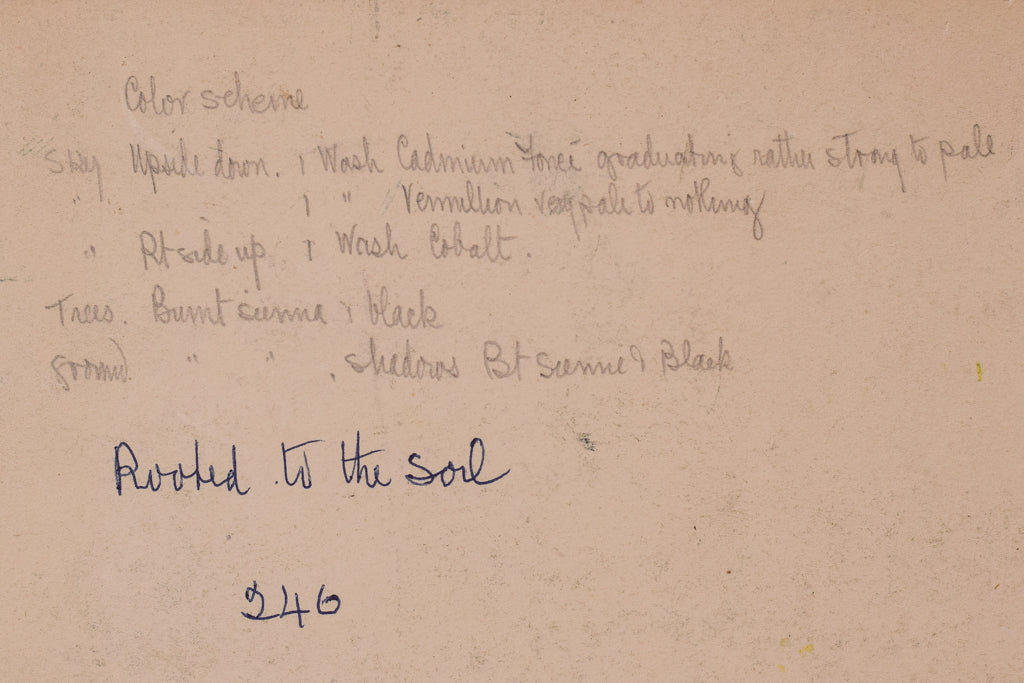 Color scheme
Sky Upside down. 1 Wash Cadmium Foncé graduating rather strong to pale
" 1 " Vermillion very pale to nothing
" Rt side up 1 Wash Cobalt.
Trees. Burnt sienna & black
ground. " " . shadows Bt Sienne & Black
Rooted to the soil
246